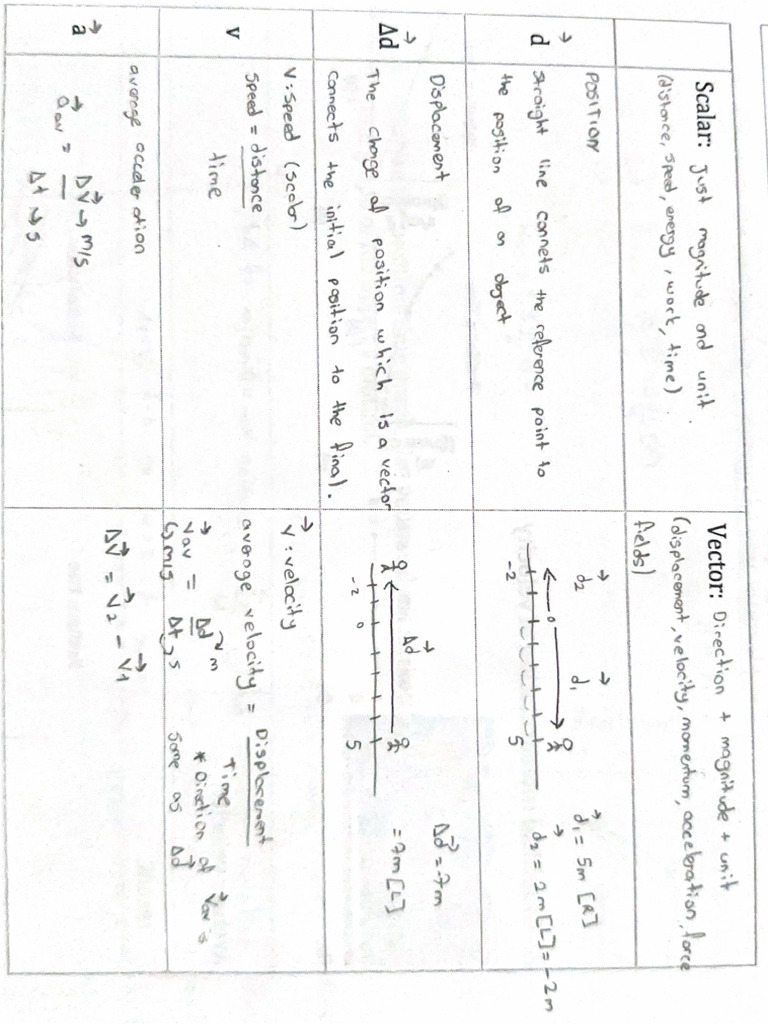 Scalar: just magnitude and unit
(distance, speed, energy, work, time)
Vector: Direction + magnitude + unit
(displacement, velocity, momentum, acceleration, force
fields)
d⃗
POSITION
straight line connets the reference point to
the position of an object
d⃗2 d⃗1
0
-2 5
d⃗1 = 5m [R]
d⃗2 = 2m [L] = -2m
Δd⃗
Displacement
The change of position which is a vector
connects the initial position to the final.
Δd⃗
-2 0 5
Δd⃗ = -7m
= 7m [L]
v
V: Speed (scalar)
Speed = distance
time
v⃗ : velocity
average velocity = Displacement
time
v⃗av = Δd⃗ → m
↳ m/s Δt → s
* Direction of v⃗av is
same as Δd⃗
a⃗
average acceleration
a⃗av = ΔV⃗ → m/s
Δt → s
ΔV⃗ = V⃗2 - V⃗1